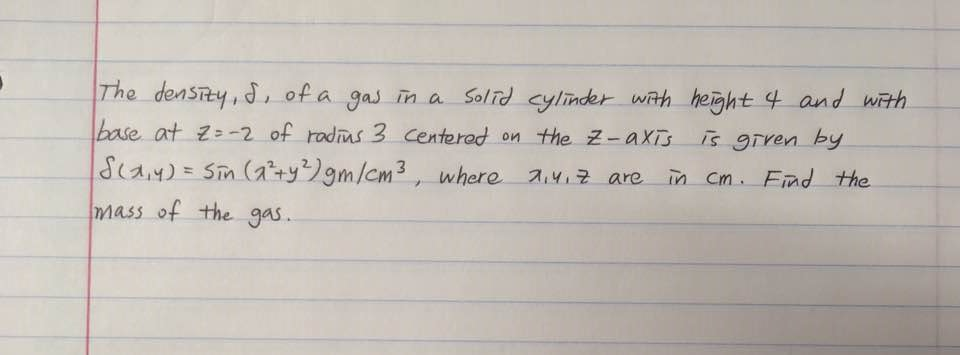 The density, δ, of a gas in a solid cylinder with height 4 and with
base at z=-2 of radius 3 centered on the z-axis is given by
δ(x,y) = sin(x²+y²)gm/cm³, where x,y,z are in cm. Find the
mass of the gas.